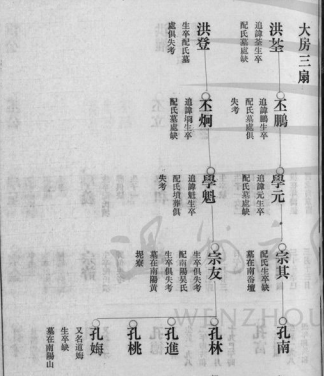 大房三扇
洪荃
追諱荃生卒
配氏墓處缺
丕鵬
追諱鵬生卒
配氏墓處俱
失考
學元
追諱元生卒
配氏墓處缺
宗其
配氏生卒缺
墓在南
孔南
洪登
生卒配氏墓
處俱失考
丕炯
配氏墓處缺
學魁
追諱魁生卒
配氏墳葬俱
失考
宗友
生卒俱失考
配南陽吳氏
生卒俱失考
墓在南陽黃
坭寮
孔林
孔進
孔桃
孔姆
又名道姆
生卒缺
墓在南陽山
WENZHOU